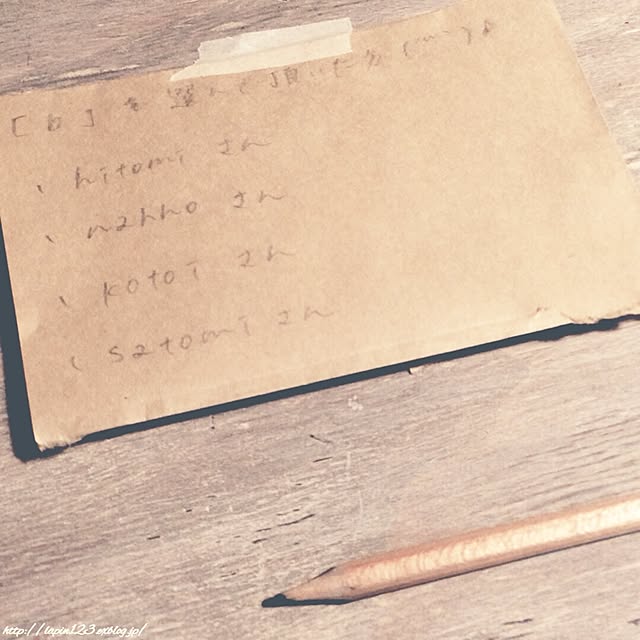 [b]を選んで頂いた方(^-^)♪
、hitomi さん
、nahho さん
、kotoi さん
、satomi さん
http://lapin123.exblog.jp/